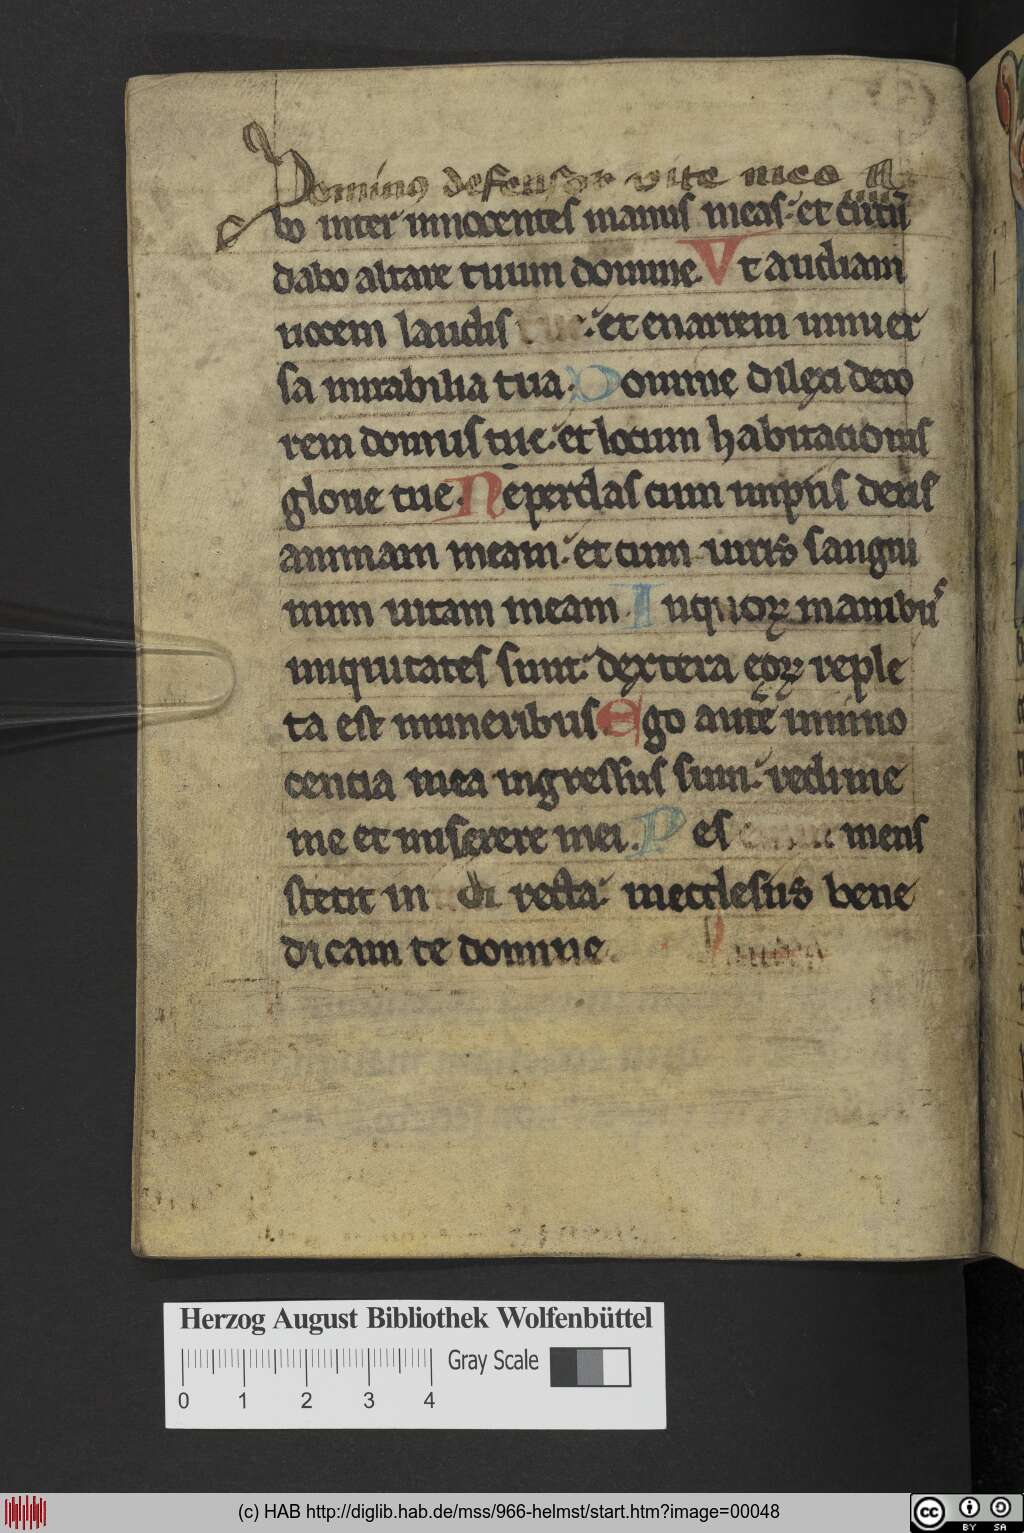 Dominus defensor vite mee
bo inter innocentes manus meas. et circū
dabo altare tuum domine. Vt audiam
uocem laudis tue. et enarrem uniuer
sa mirabilia tua. Domine dilexi deco
rem domus tue. et locum habitacionis
glorie tue. Ne perdas cum impiis deus
animam meam. et cum uiris sangui
num uitam meam. In quorꝝ manibꝰ
iniquitates sunt. dextera eorꝝ reple
ta est muneribus. Ego autē in inno
centia mea ingressus sum. redime
me et miserere mei. Pes meus
stetit in di recta. in ecclesiis bene
dicam te domine.
Herzog August Bibliothek Wolfenbüttel
Gray Scale
0 1 2 3 4
(c) HAB http://diglib.hab.de/mss/966-helmst/start.htm?image=00048
cc BY SA